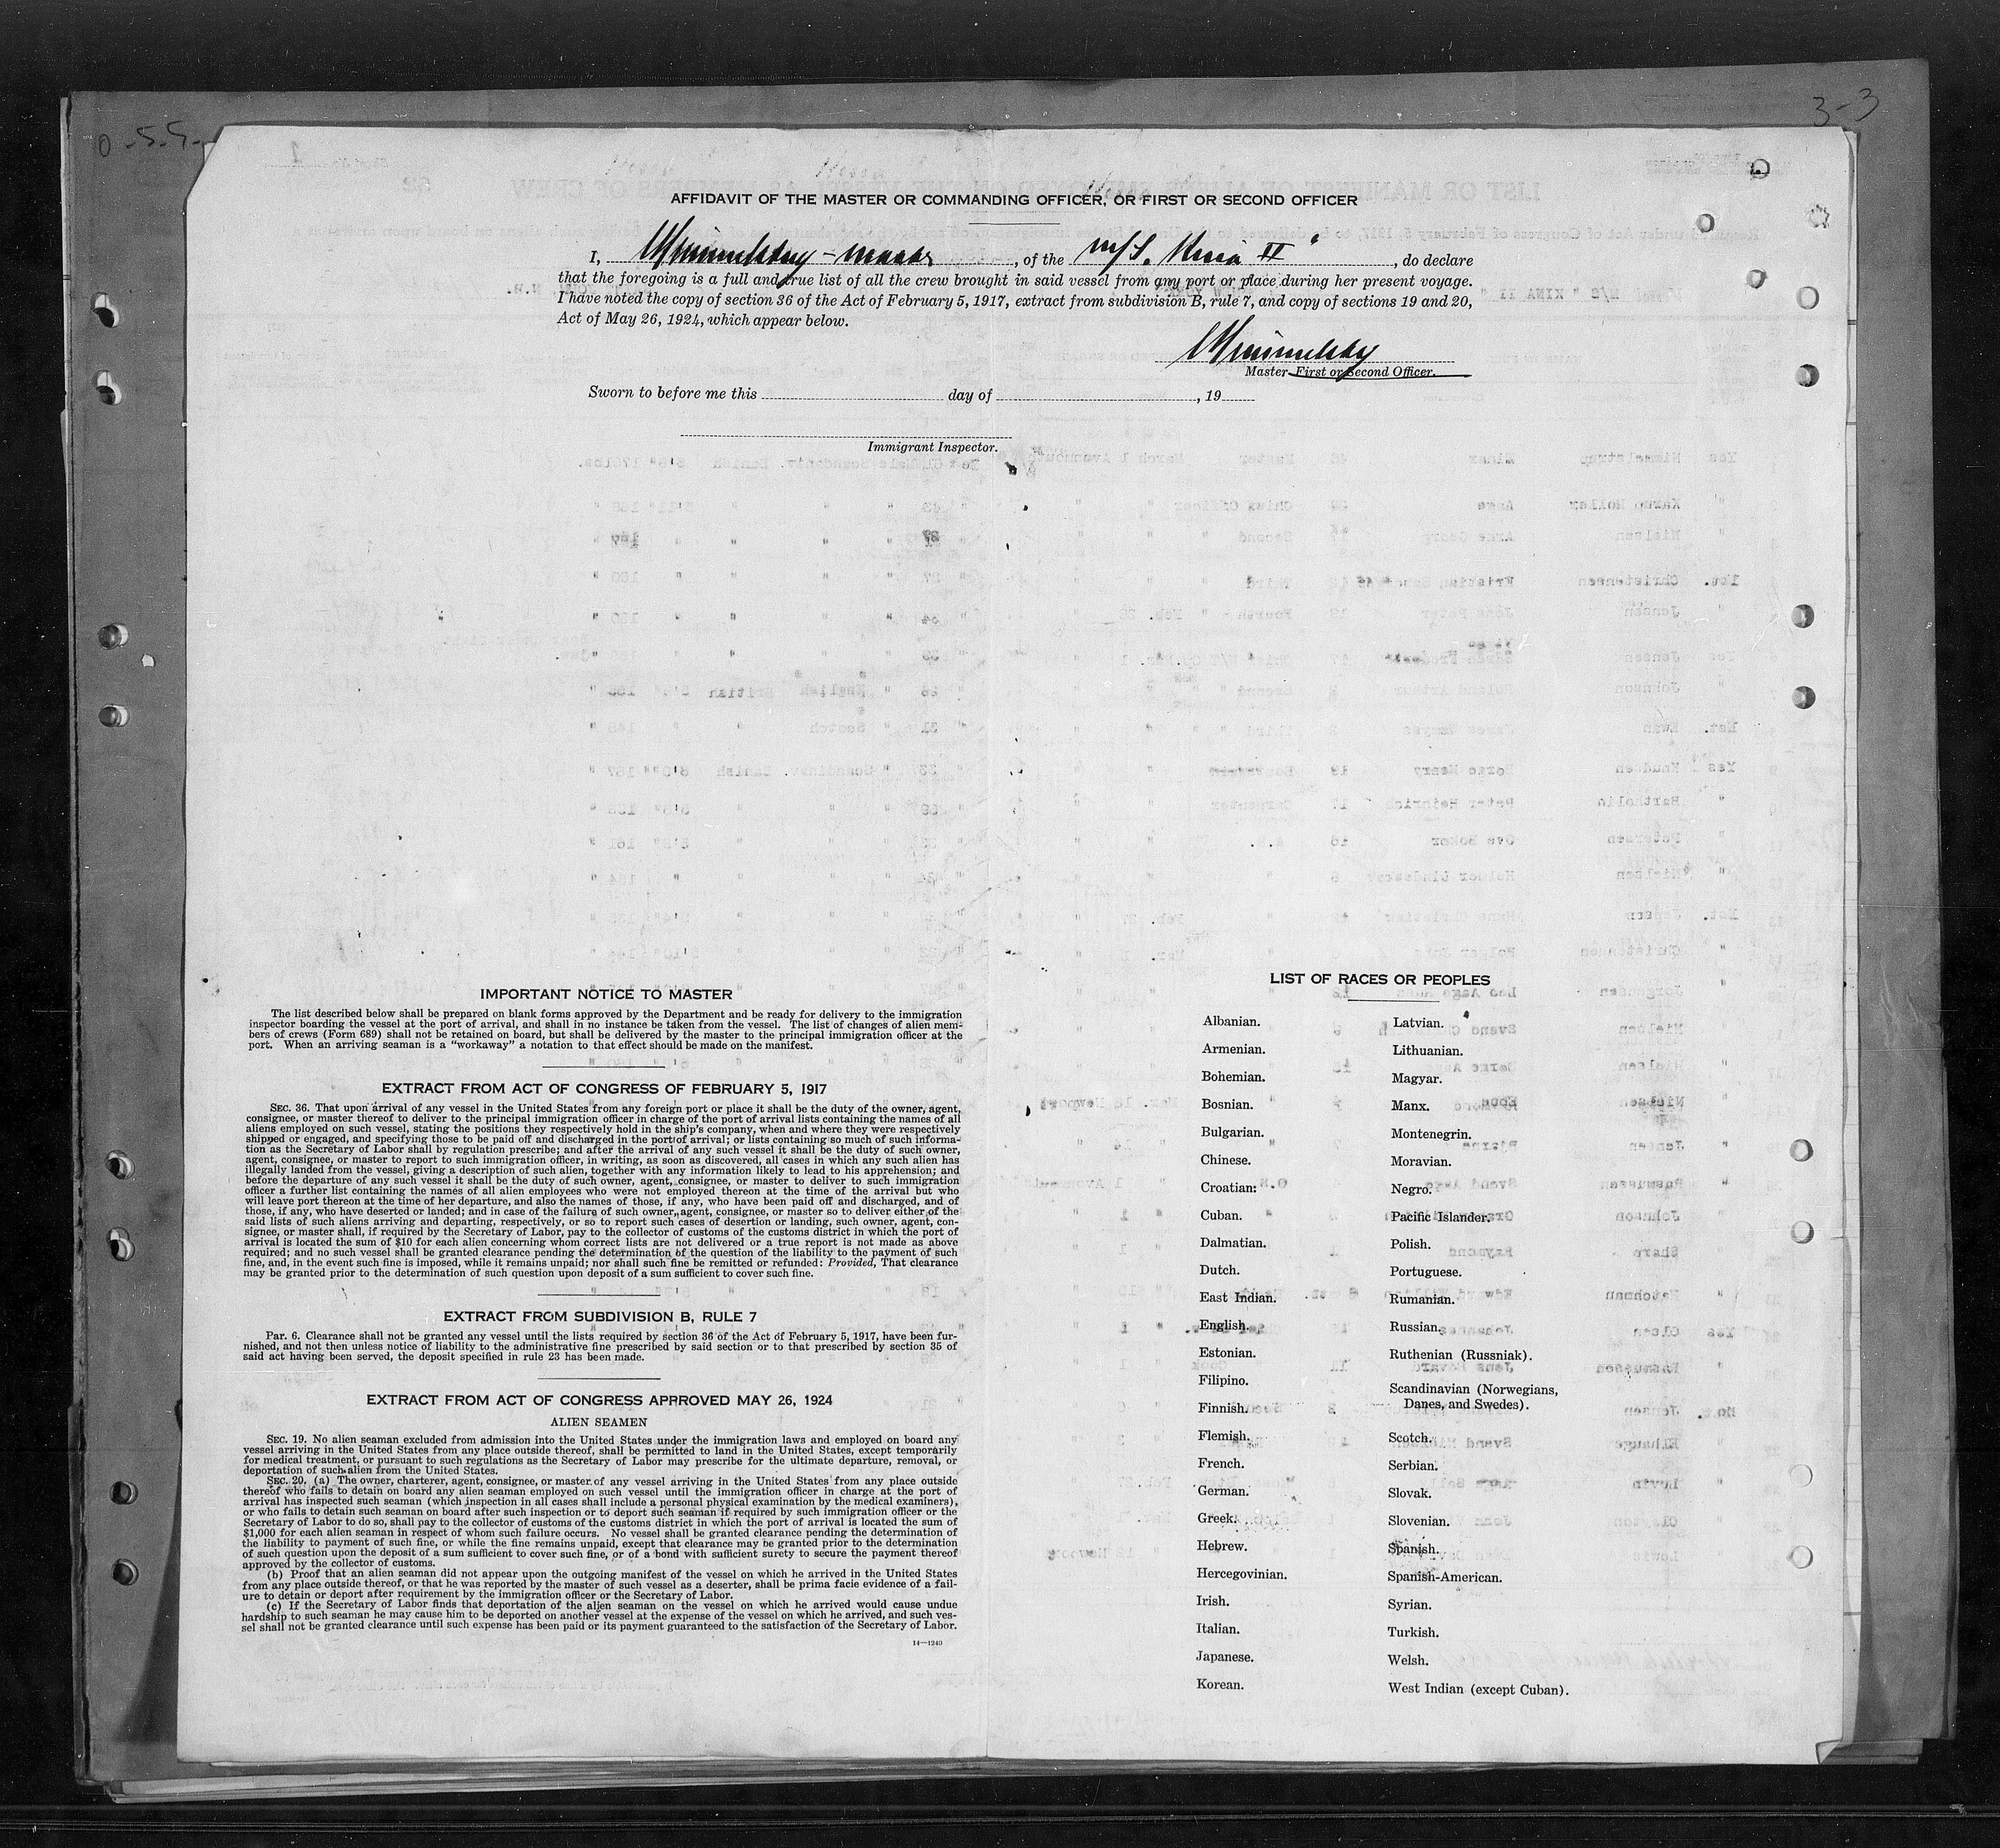 O.S.S.
3-3
AFFIDAVIT OF THE MASTER OR COMMANDING OFFICER, OR FIRST OR SECOND OFFICER
I, master, of the m/S. "Kina II", do declare
that the foregoing is a full and true list of all the crew brought in said vessel from any port or place during her present voyage.
I have noted the copy of section 36 of the Act of February 5, 1917, extract from subdivision B, rule 7, and copy of sections 19 and 20,
Act of May 26, 1924, which appear below.
Master First or Second Officer.
Sworn to before me this day of , 19
Immigrant Inspector.
IMPORTANT NOTICE TO MASTER
The list described below shall be prepared on blank forms approved by the Department and be ready for delivery to the immigration
inspector boarding the vessel at the port of arrival, and shall in no instance be taken from the vessel. The list of changes of alien mem-
bers of crews (Form 689) shall not be retained on board, but shall be delivered by the master to the principal immigration officer at the
port. When an arriving seaman is a "workaway" a notation to that effect should be made on the manifest.
EXTRACT FROM ACT OF CONGRESS OF FEBRUARY 5, 1917
SEC. 36. That upon arrival of any vessel in the United States from any foreign port or place it shall be the duty of the owner, agent,
consignee, or master thereof to deliver to the principal immigration officer in charge of the port of arrival lists containing the names of all
aliens employed on such vessel, stating the positions they respectively hold in the ship's company, when and where they were respectively
shipped or engaged, and specifying those to be paid off and discharged in the port of arrival; or lists containing so much of such informa-
tion as the Secretary of Labor shall by regulation prescribe; and after the arrival of any such vessel it shall be the duty of such owner,
agent, consignee, or master to report to such immigration officer, in writing, as soon as discovered, all cases in which any such alien has
illegally landed from the vessel, giving a description of such alien, together with any information likely to lead to his apprehension; and
before the departure of any such vessel it shall be the duty of such owner, agent, consignee, or master to deliver to such immigration
officer a further list containing the names of all alien employees who were not employed thereon at the time of the arrival but who
will leave port thereon at the time of her departure, and also the names of those, if any, who have been paid off and discharged, and of
those, if any, who have deserted or landed; and in case of the failure of such owner, agent, consignee, or master so to deliver either of the
said lists of such aliens arriving and departing, respectively, or so to report such cases of desertion or landing, such owner, agent, con-
signee, or master shall, if required by the Secretary of Labor, pay to the collector of customs of the customs district in which the port of
arrival is located the sum of $10 for each alien concerning whom correct lists are not delivered or a true report is not made as above
required; and no such vessel shall be granted clearance pending the determination of the question of the liability to the payment of such
fine, and, in the event such fine is imposed, while it remains unpaid; nor shall such fine be remitted or refunded: Provided, That clearance
may be granted prior to the determination of such question upon deposit of a sum sufficient to cover such fine.
EXTRACT FROM SUBDIVISION B, RULE 7
Par. 6. Clearance shall not be granted any vessel until the lists required by section 36 of the Act of February 5, 1917, have been fur-
nished, and not then unless notice of liability to the administrative fine prescribed by said section or to that prescribed by section 35 of
said act having been served, the deposit specified in rule 23 has been made.
EXTRACT FROM ACT OF CONGRESS APPROVED MAY 26, 1924
ALIEN SEAMEN
SEC. 19. No alien seaman excluded from admission into the United States under the immigration laws and employed on board any
vessel arriving in the United States from any place outside thereof, shall be permitted to land in the United States, except temporarily
for medical treatment, or pursuant to such regulations as the Secretary of Labor may prescribe for the ultimate departure, removal, or
deportation of such alien from the United States.
SEC. 20. (a) The owner, charterer, agent, consignee, or master of any vessel arriving in the United States from any place outside
thereof who fails to detain on board any alien seaman employed on such vessel until the immigration officer in charge at the port of
arrival has inspected such seaman (which inspection in all cases shall include a personal physical examination by the medical examiners),
or who fails to detain such seaman on board after such inspection or to deport such seaman if required by such immigration officer or the
Secretary of Labor to do so, shall pay to the collector of customs of the customs district in which the port of arrival is located the sum of
$1,000 for each alien seaman in respect of whom such failure occurs. No vessel shall be granted clearance pending the determination of
the liability to payment of such fine, or while the fine remains unpaid, except that clearance may be granted prior to the determination
of such question upon the deposit of a sum sufficient to cover such fine, or of a bond with sufficient surety to secure the payment thereof
approved by the collector of customs.
(b) Proof that an alien seaman did not appear upon the outgoing manifest of the vessel on which he arrived in the United States
from any place outside thereof, or that he was reported by the master of such vessel as a deserter, shall be prima facie evidence of a fail-
ure to detain or deport after requirement by the immigration officer or the Secretary of Labor.
(c) If the Secretary of Labor finds that deportation of the alien seaman on the vessel on which he arrived would cause undue
hardship to such seaman he may cause him to be deported on another vessel at the expense of the vessel on which he arrived, and such ves-
sel shall not be granted clearance until such expense has been paid or its payment guaranteed to the satisfaction of the Secretary of Labor.
14—1240
LIST OF RACES OR PEOPLES
Albanian.
Armenian.
Bohemian.
Bosnian.
Bulgarian.
Chinese.
Croatian.
Cuban.
Dalmatian.
Dutch.
East Indian.
English.
Estonian.
Filipino.
Finnish.
Flemish.
French.
German.
Greek.
Hebrew.
Hercegovinian.
Irish.
Italian.
Japanese.
Korean.
Latvian.
Lithuanian.
Magyar.
Manx.
Montenegrin.
Moravian.
Negro.
Pacific Islander.
Polish.
Portuguese.
Rumanian.
Russian.
Ruthenian (Russniak).
Scandinavian (Norwegians,
Danes, and Swedes).
Scotch.
Serbian.
Slovak.
Slovenian.
Spanish.
Spanish-American.
Syrian.
Turkish.
Welsh.
West Indian (except Cuban).